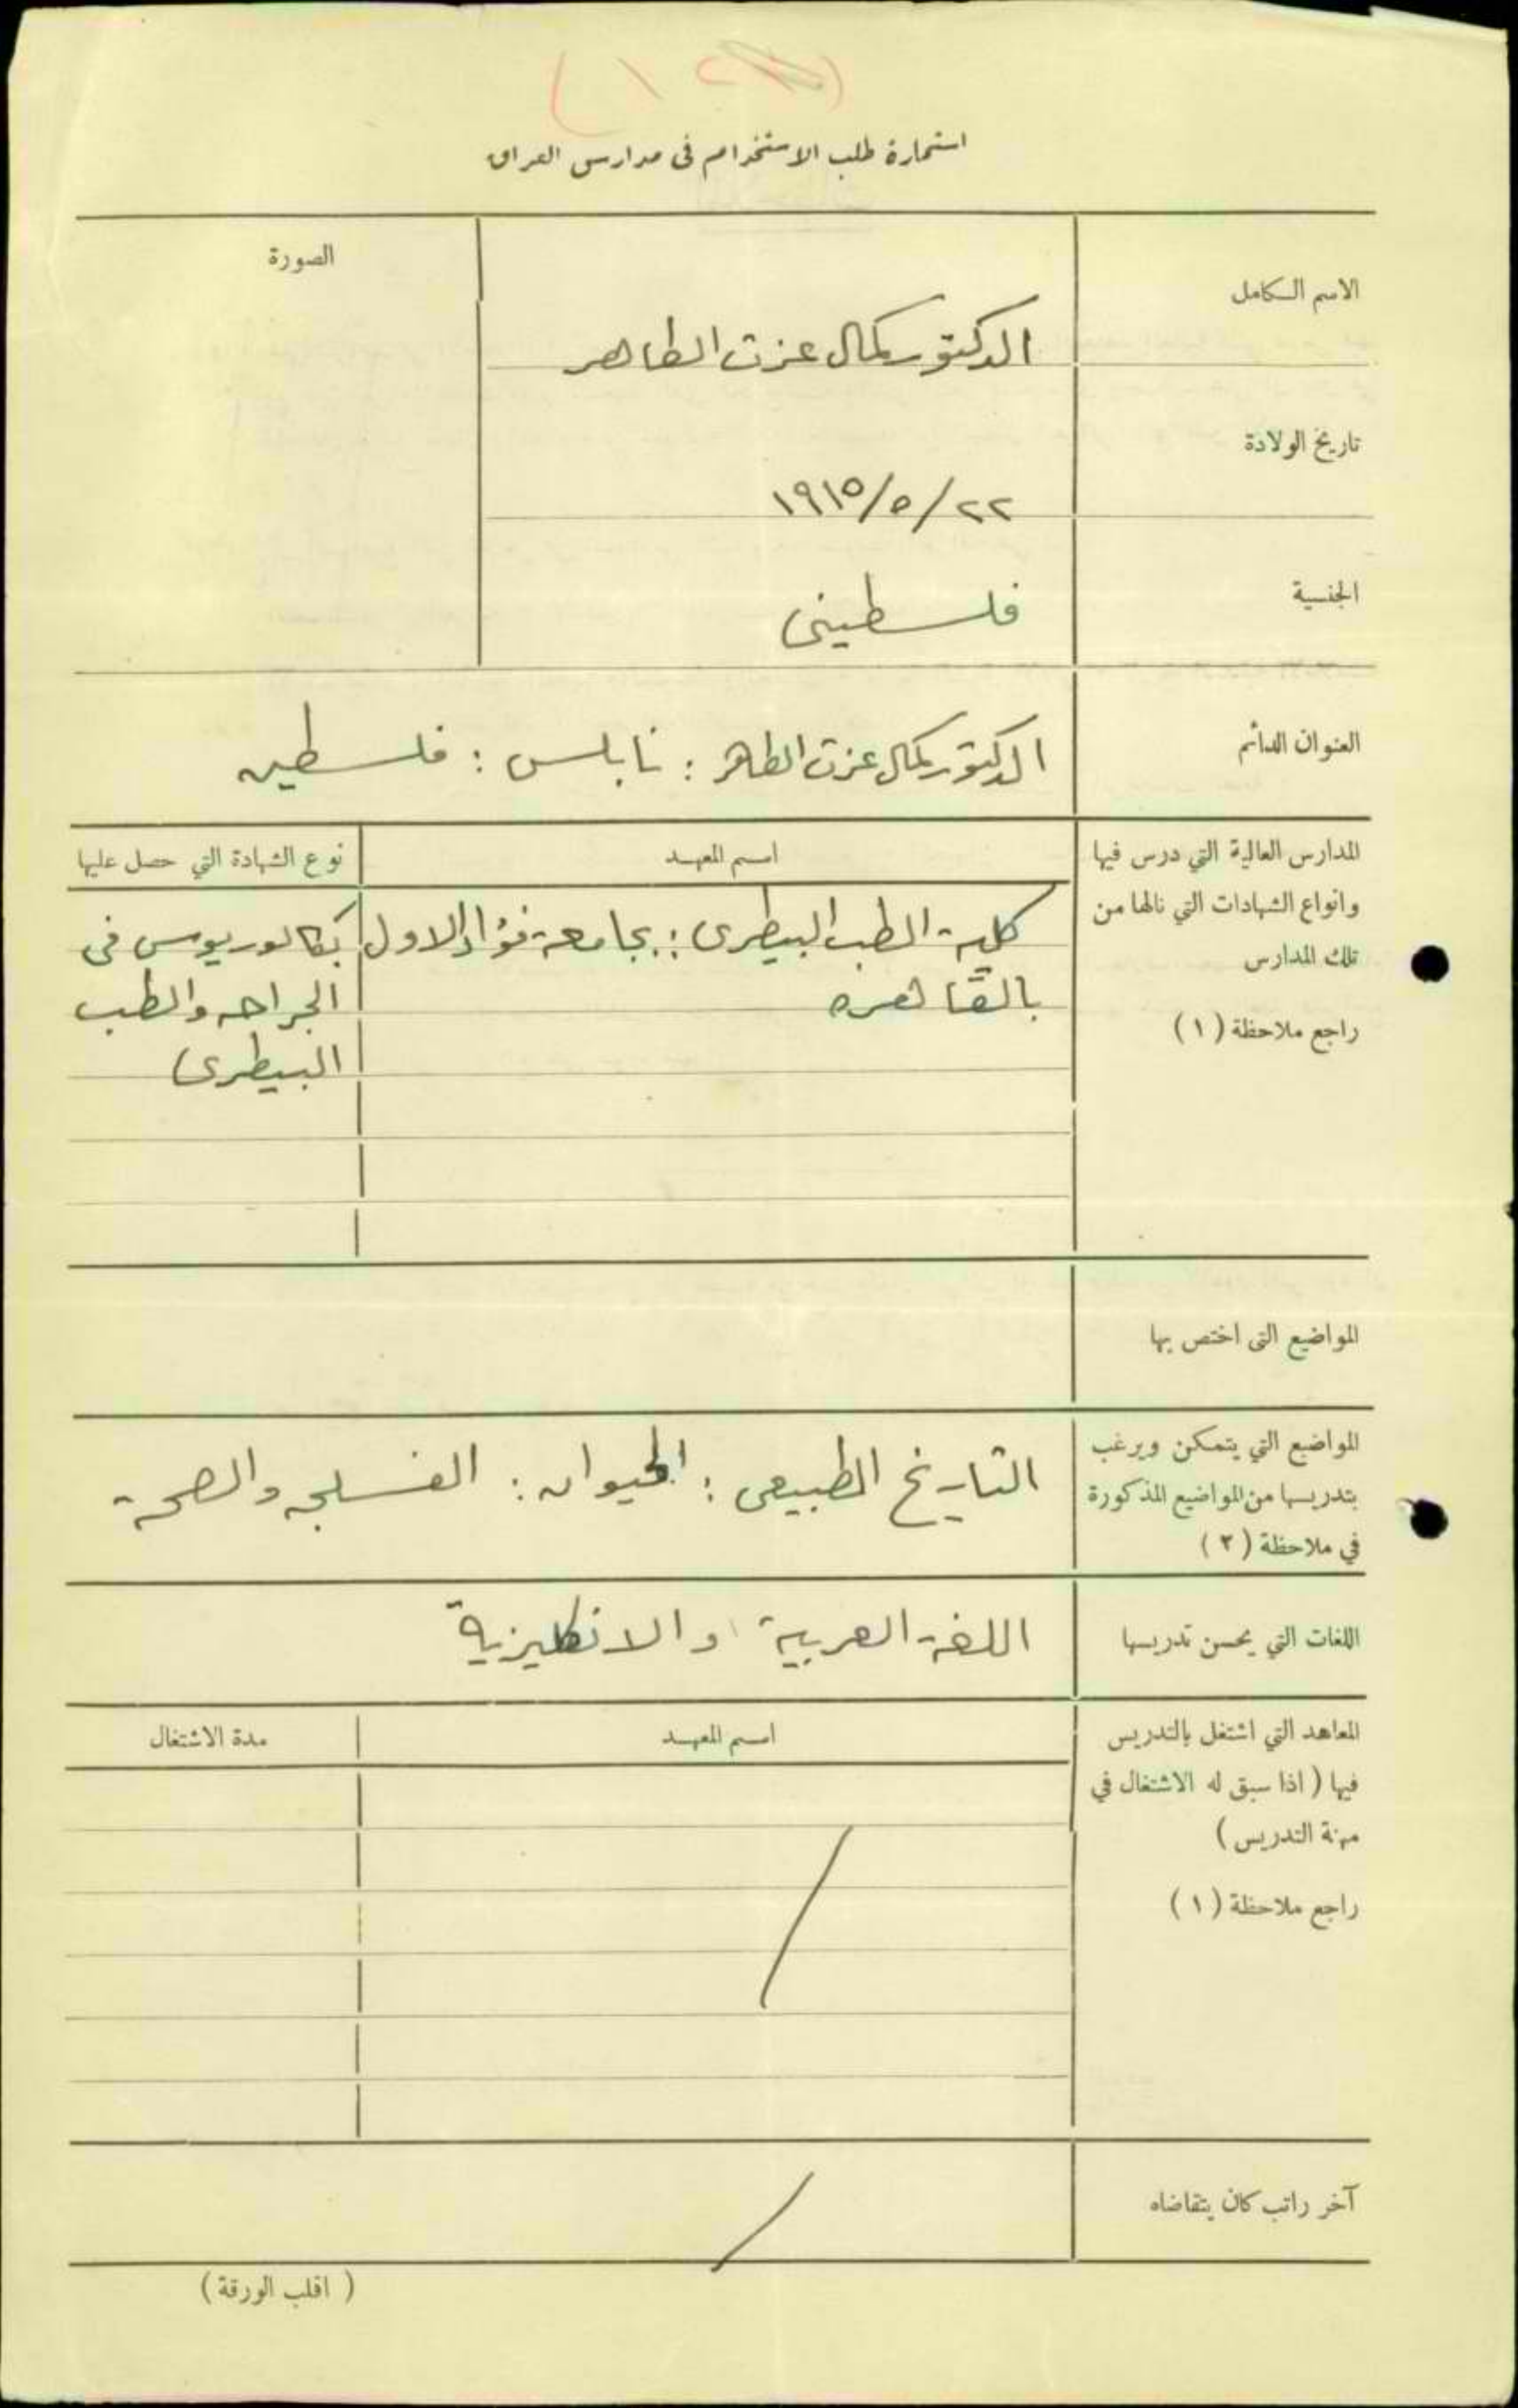 استمارة طلب الاستخدام في مدارس العراق
الصورة
الاسم الكامل
الدكتور كمال عزت الطاهر
تاريخ الولادة
٢٢/٥/١٩١٥
الجنسية
فلسطيني
العنوان الدائم
الدكتور كمال عزت الطاهر : نابلس : فلسطين
المدارس العالية التي درس فيها
وانواع الشهادات التي نالها من
تلك المدارس
راجع ملاحظة (١)
اسم المعهد
نوع الشهادة التي حصل عليها
كلية الطب البيطرى : بجامعة فؤاد الاول
بالقاهره
بكالوريوس فى
الجراحه والطب
البيطرى
المواضيع التى اختص بها
المواضيع التي يتمكن ويرغب
بتدريسها من المواضيع المذكورة
في ملاحظة (٢)
التاريخ الطبيعى : الحيوان : الفسلجه والصحة
اللغات التي يحسن تدريسها
اللغة العربية والانكليزية
المعاهد التي اشتغل بالتدريس
فيها (اذا سبق له الاشتغال في
مهنة التدريس)
راجع ملاحظة (١)
اسم المعهد
مدة الاشتغال
آخر راتب كان يتقاضاه
(اقلب الورقة)